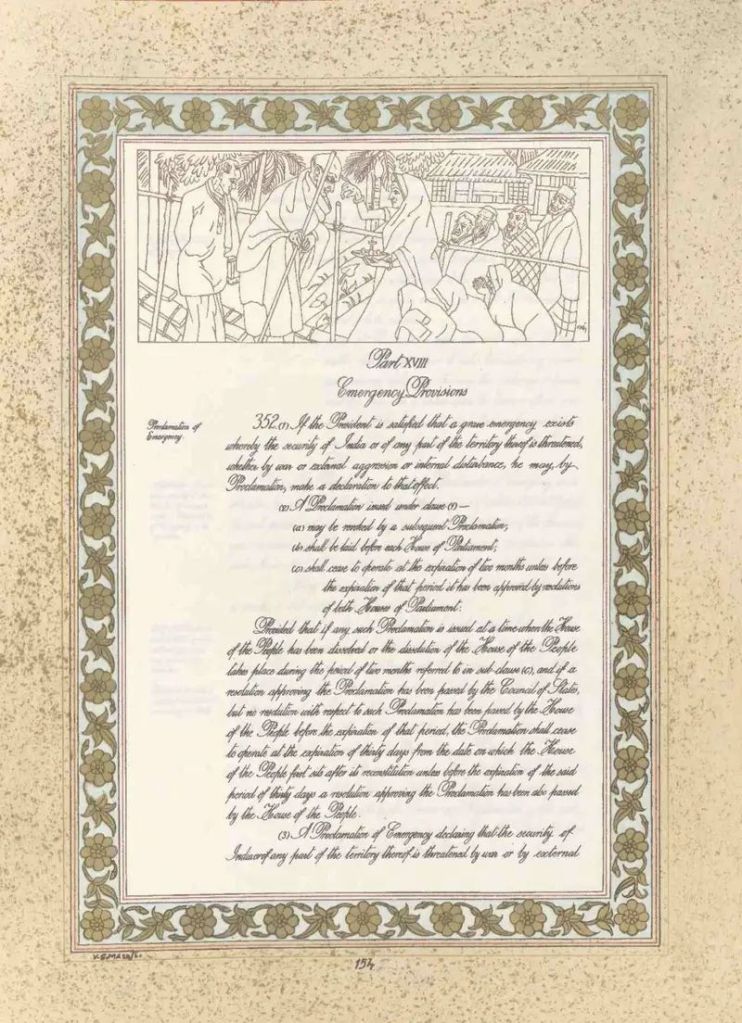 Part XVIII
Emergency Provisions
Proclamation of
Emergency.
352. (1) If the President is satisfied that a grave emergency exists
whereby the security of India or of any part of the territory thereof is threatened,
whether by war or external aggression or internal disturbance, he may, by
Proclamation, make a declaration to that effect.
(2) A Proclamation issued under clause (1) —
(a) may be revoked by a subsequent Proclamation;
(b) shall be laid before each House of Parliament;
(c) shall cease to operate at the expiration of two months unless before
the expiration of that period it has been approved by resolutions
of both Houses of Parliament:
Provided that if any such Proclamation is issued at a time when the House
of the People has been dissolved or the dissolution of the House of the People
takes place during the period of two months referred to in sub-clause (c), and if a
resolution approving the Proclamation has been passed by the Council of States,
but no resolution with respect to such Proclamation has been passed by the House
of the People before the expiration of that period, the Proclamation shall cease
to operate at the expiration of thirty days from the date on which the House
of the People first sits after its reconstitution unless before the expiration of the said
period of thirty days a resolution approving the Proclamation has been also passed
by the House of the People.
(3) A Proclamation of Emergency declaring that the security of
India or of any part of the territory thereof is threatened by war or by external
154